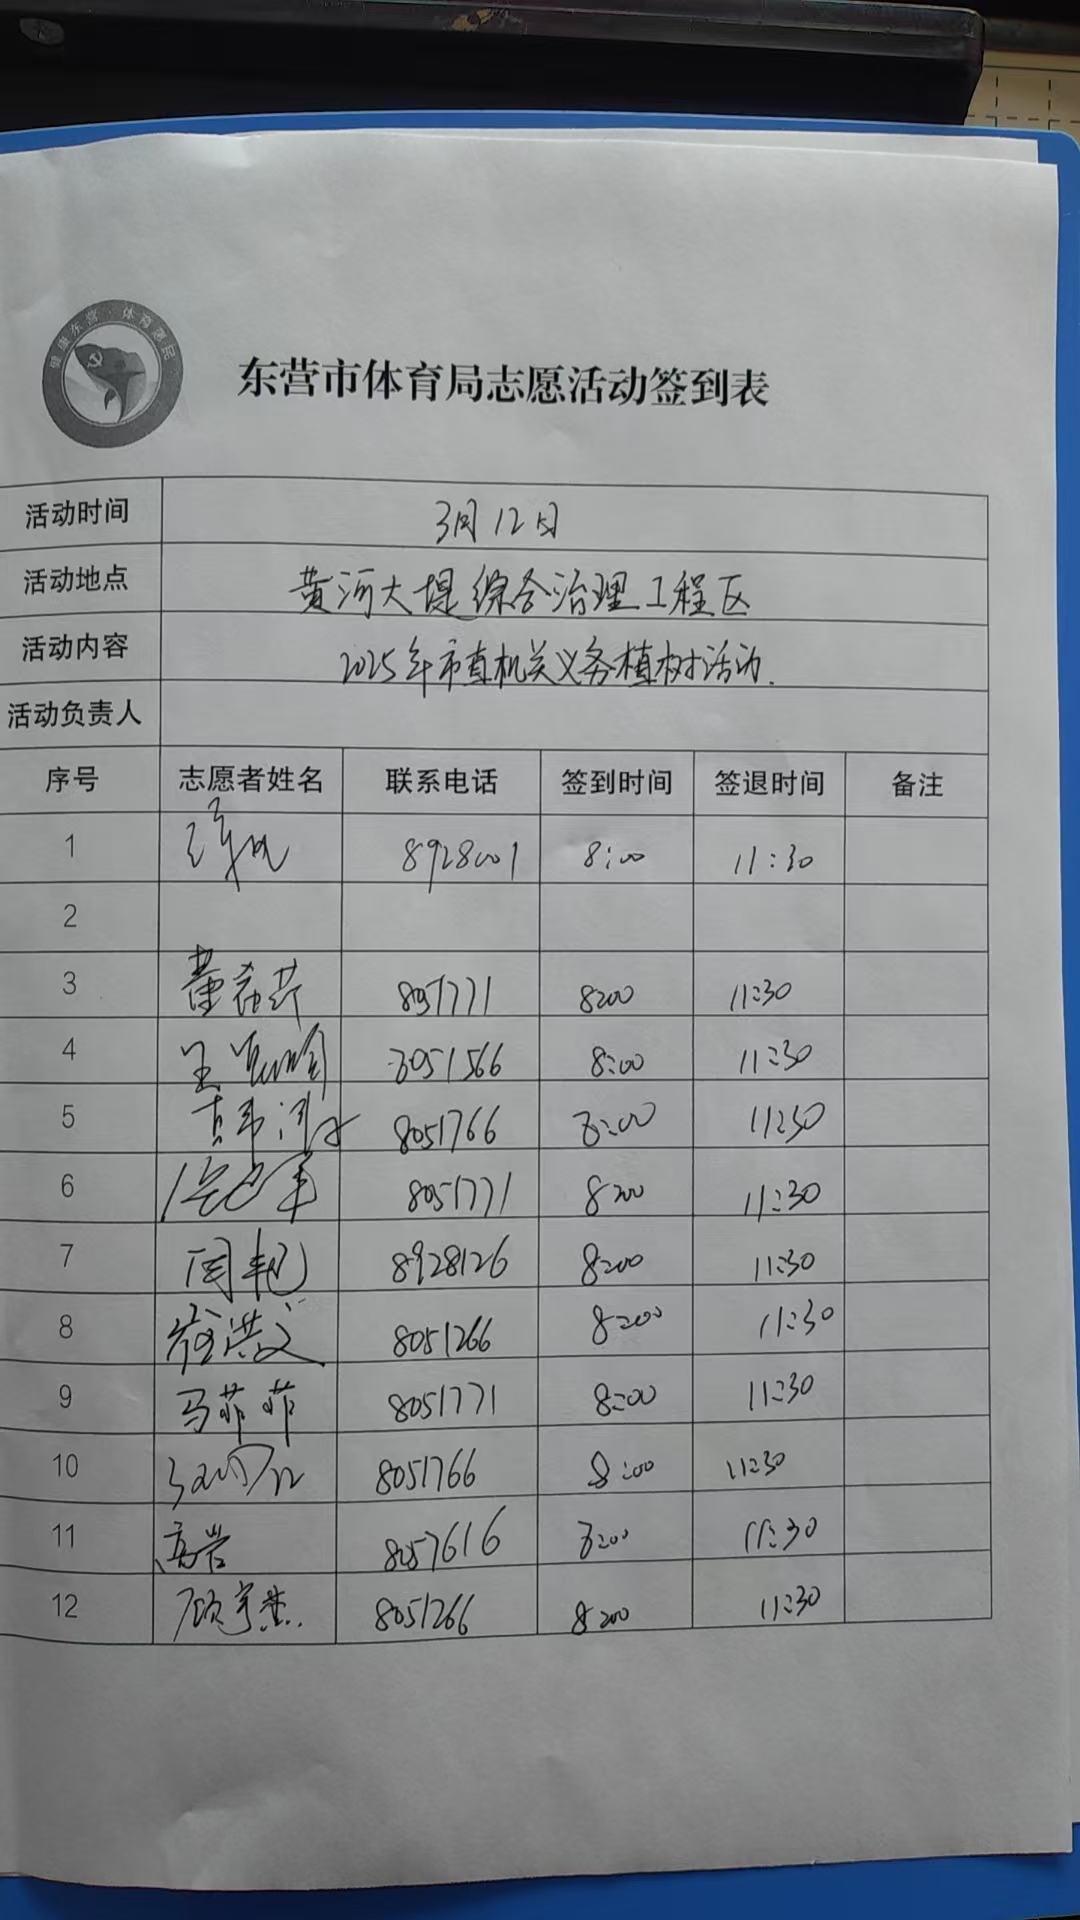 健康东营·体育惠民
东营市体育局志愿活动签到表
活动时间 3月12日
活动地点 黄河大堤综合治理工程区
活动内容 2025年市直机关义务植树活动.
活动负责人
序号 志愿者姓名 联系电话 签到时间 签退时间 备注
1 8928001 8:00 11:30
2
3 董希芹 8051771 8:00 11:30
4 8051566 8:00 11:30
5 8051766 8:00 11:30
6 8051771 8:00 11:30
7 周艳 8928126 8:00 11:30
8 崔洪文 8051266 8:00 11:30
9 马菲菲 8051771 8:00 11:30
10 8051766 8:00 11:30
11 高岩 8057616 8:00 11:30
12 8051266 8:00 11:30